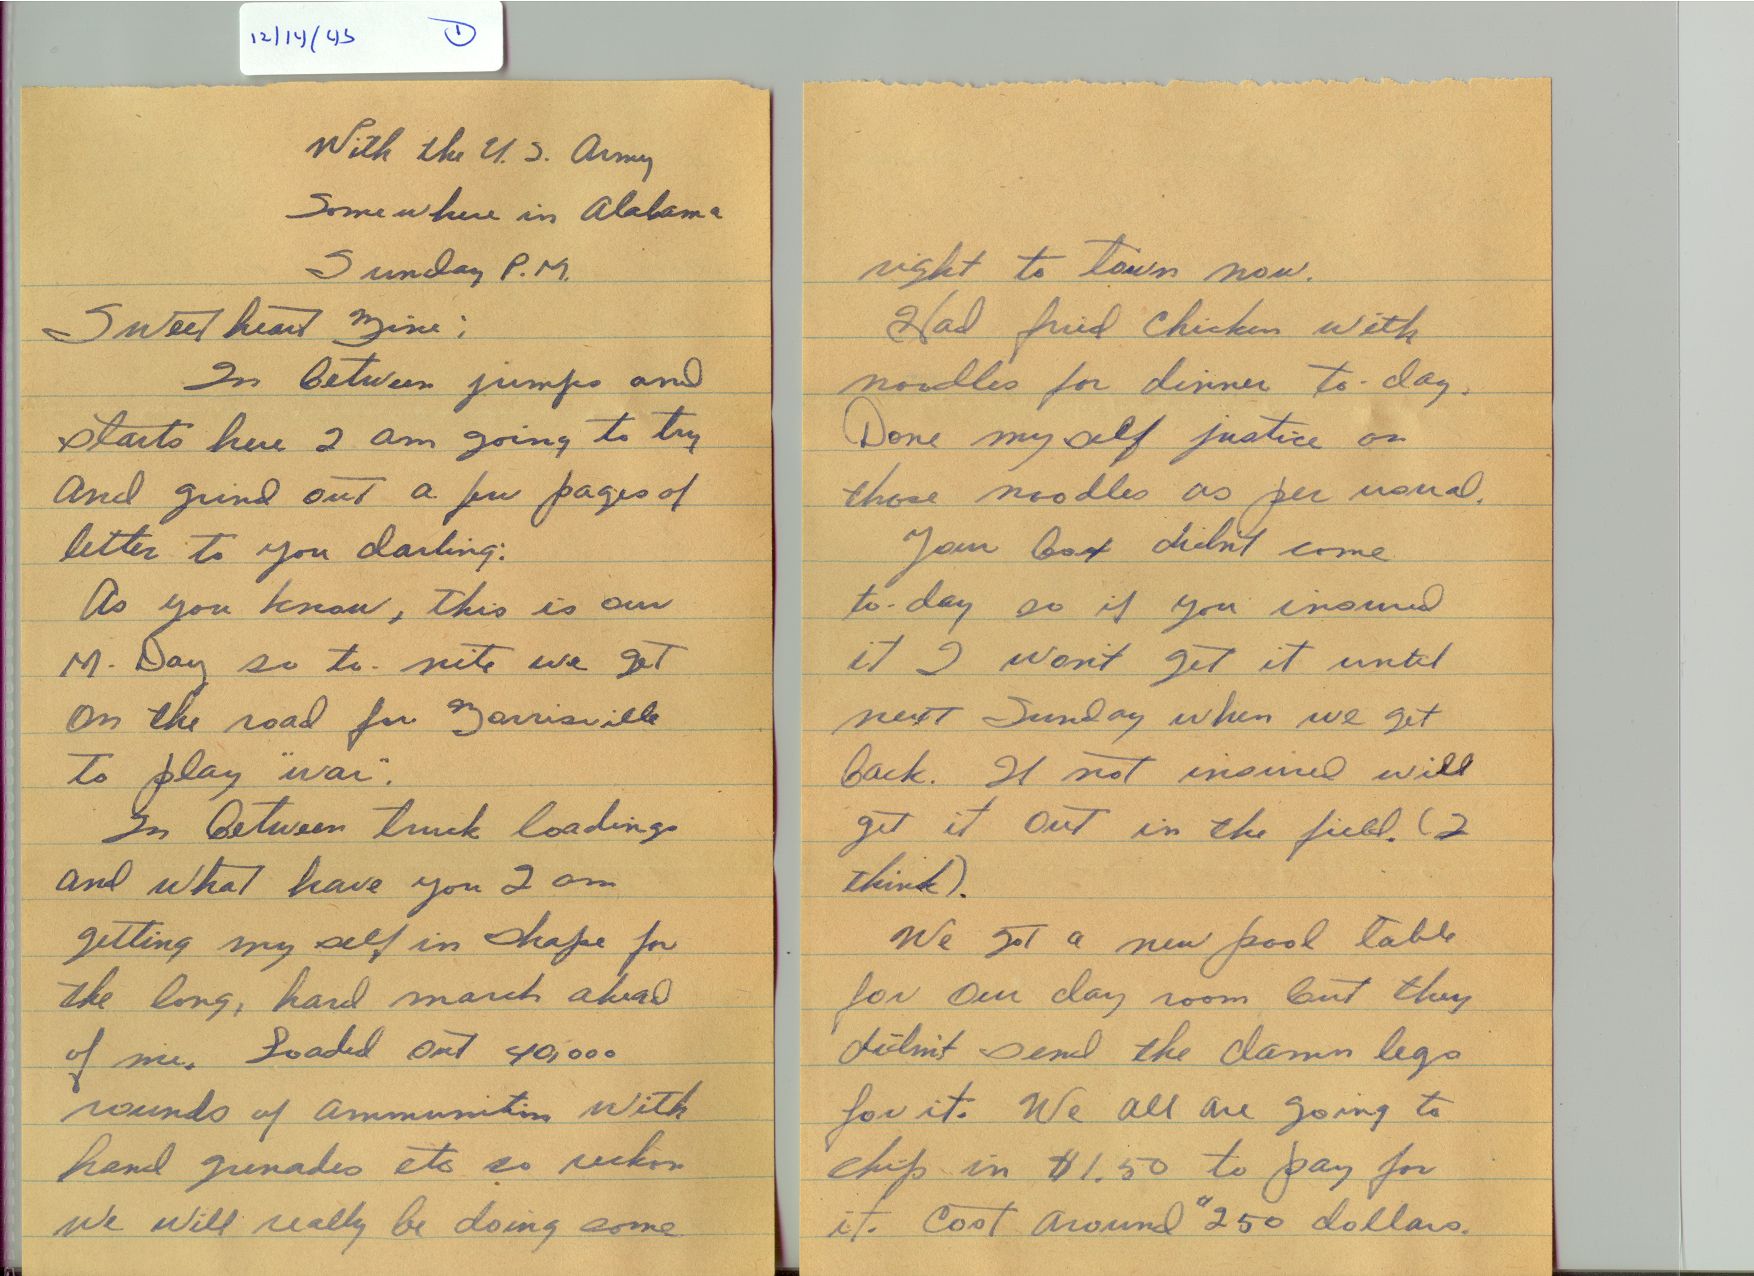 12/14/43 1
With the U.S. Army
Somewhere in Alabama
Sunday P.M.
Sweetheart Mine:
In between jumps and
starts here I am going to try
and grind out a few pages of
letter to you darling.
As you know, this is our
M. Day so to-nite we get
on the road for Morrisville
to play "war".
In between truck loadings
and what have you I am
getting my self in shape for
the long, hard march ahead
of me. Loaded out 40,000
rounds of ammunition with
hand grenades etc so reckon
we will really be doing some
right to town now.
Had fried chicken with
noodles for dinner to-day.
Done my self justice on
those noodles as per usual.
Your box didn't come
to-day so if you insured
it I won't get it until
next Sunday when we get
back. If not insured will
get it out in the field. (I
think).
We got a new pool table
for our day room but they
didn't send the damn legs
for it. We all are going to
chip in $1.50 to pay for
it. Cost around "250 dollars.